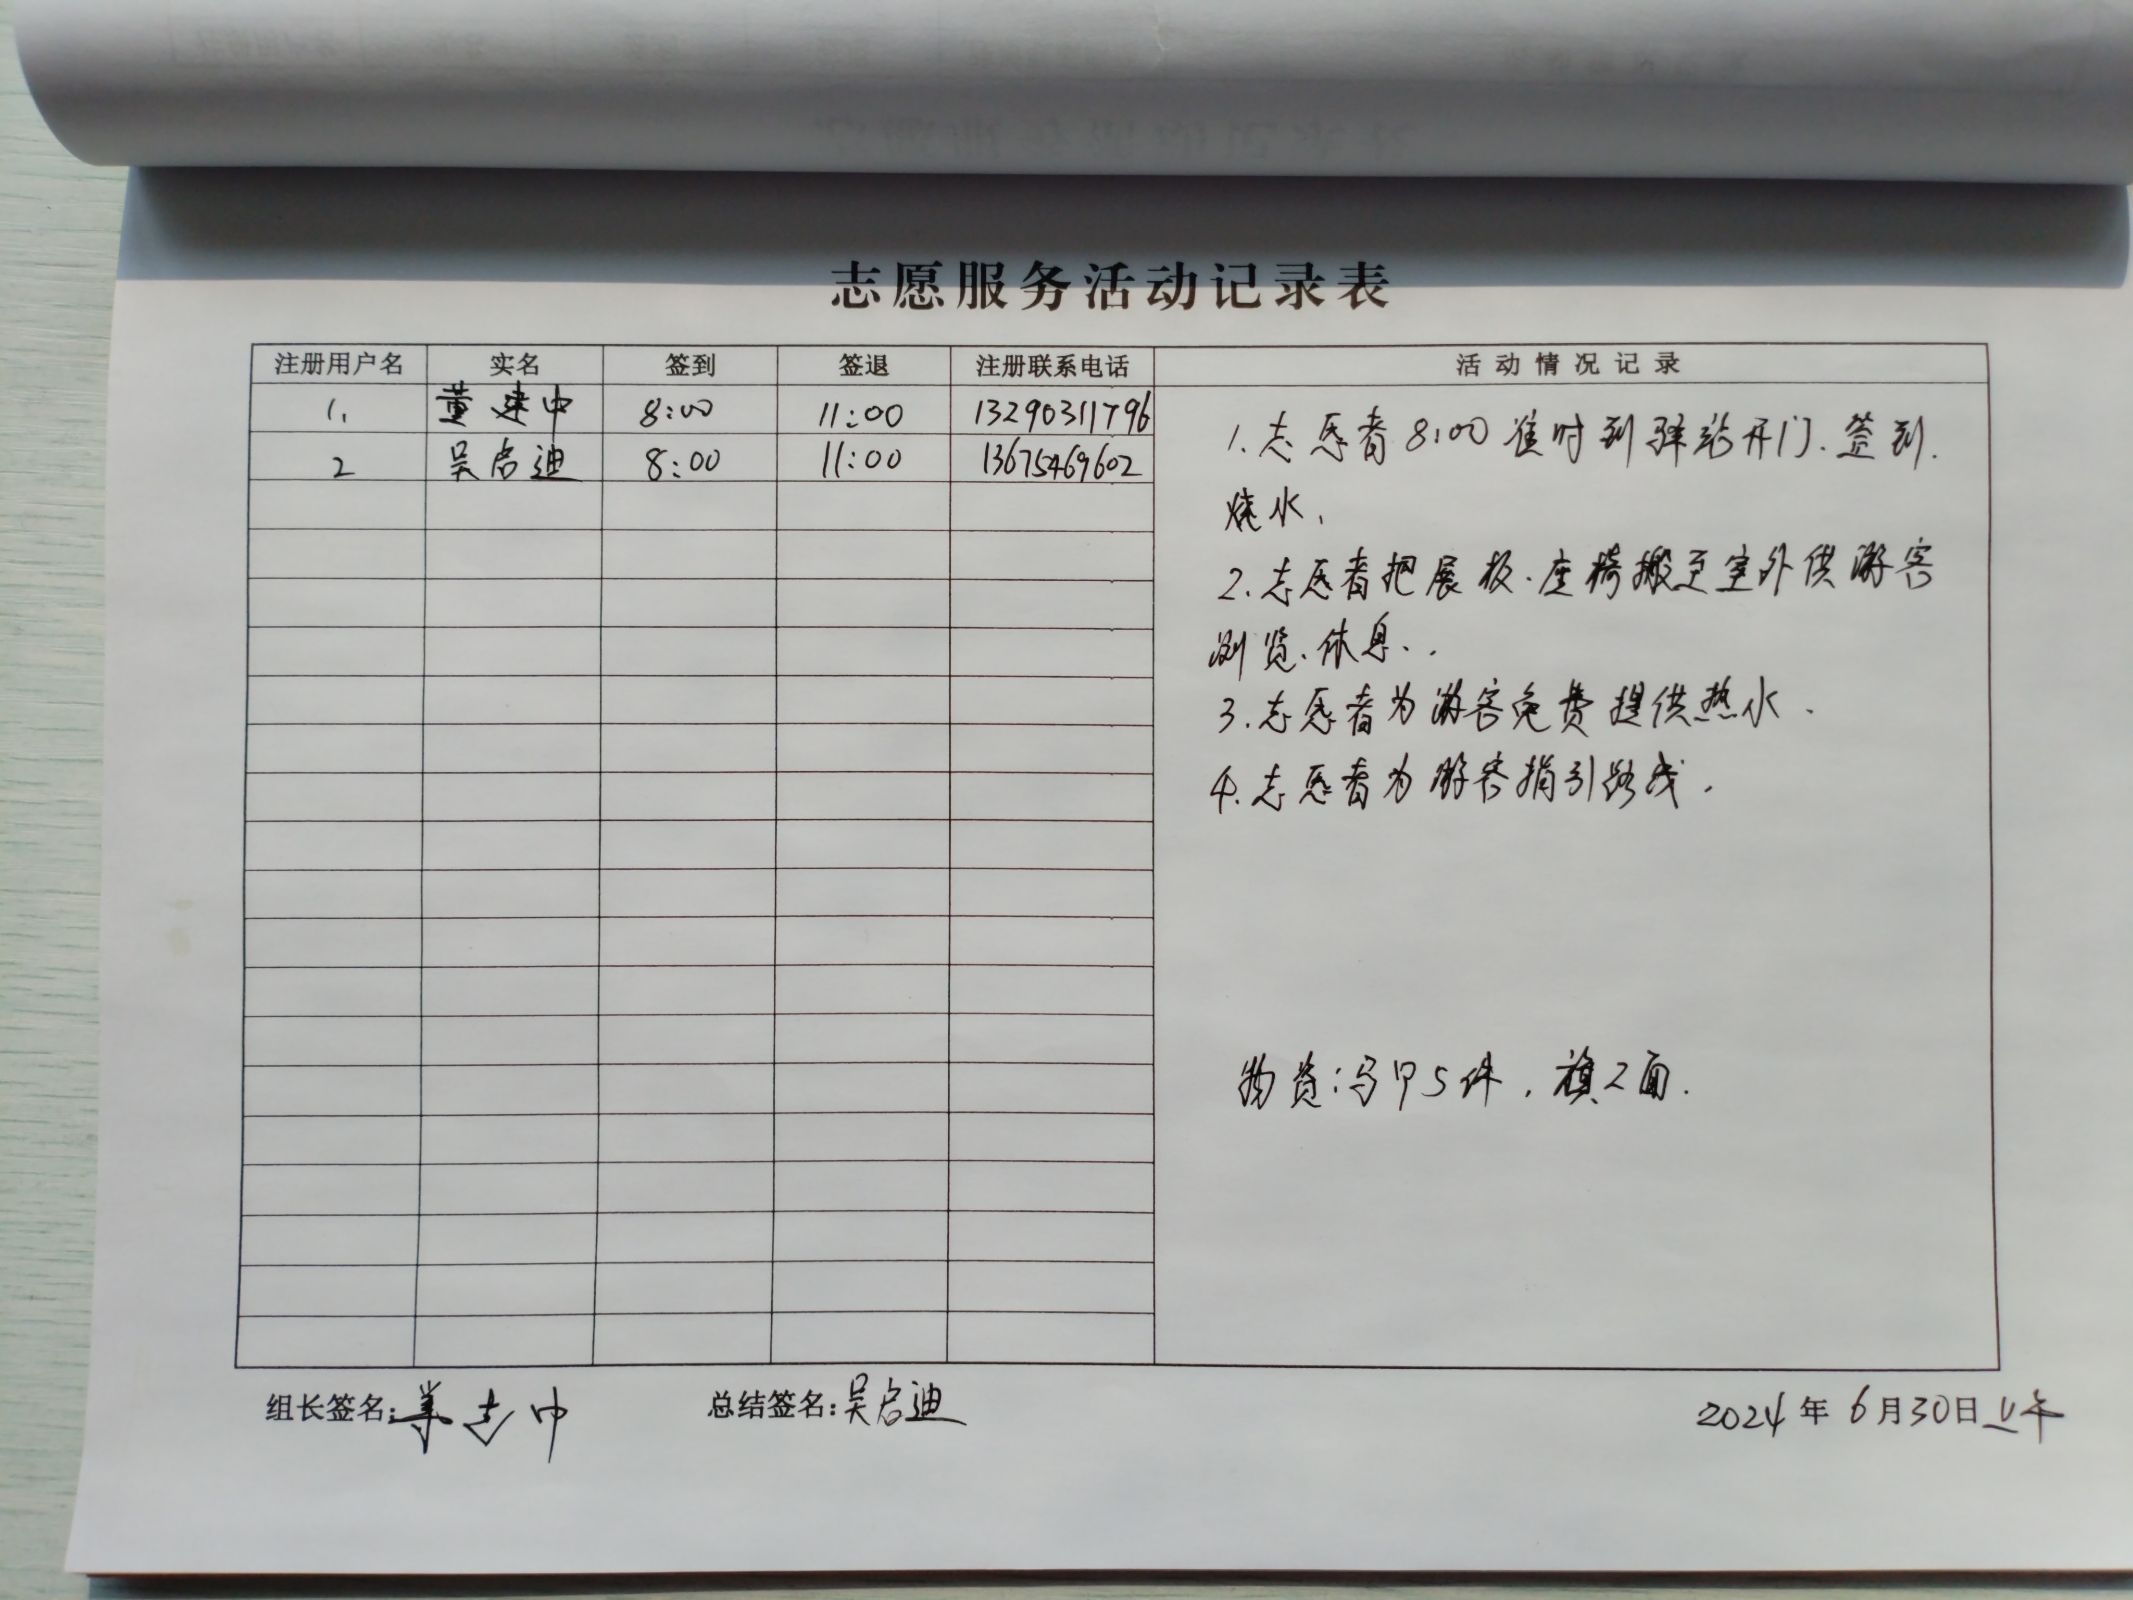 志愿服务活动记录表
注册用户名 实名 签到 签退 注册联系电话 活动情况记录
1. 董建中 8:00 11:00 13290311796
2 吴启迪 8:00 11:00 13675469602
1.志愿者8:00准时到驿站开门.签到.
烧水.
2.志愿者把展板.座椅搬至室外供游客
浏览.休息..
3.志愿者为游客免费提供热水.
4.志愿者为游客指引路线.
物资:马甲5件,旗2面.
组长签名: 总结签名:吴启迪 2024年6月30日上午